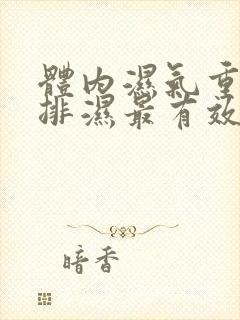 體内濕氣重
排濕最有效
暗香